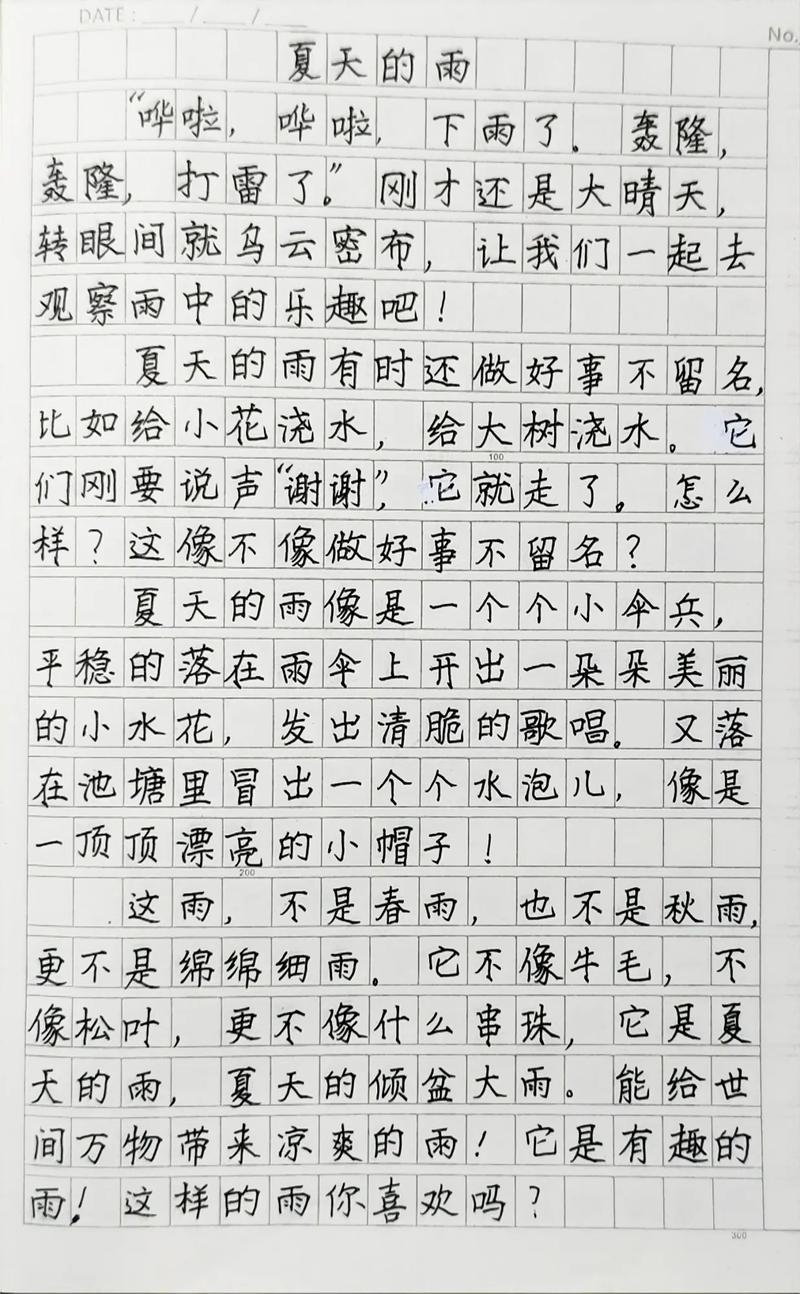 DATE: ___/___/___
No.
夏天的雨
“哗啦，哗啦，下雨了。轰隆，
轰隆，打雷了。”刚才还是大晴天，
转眼间就乌云密布，让我们一起去
观察雨中的乐趣吧！
夏天的雨有时还做好事不留名，
比如给小花浇水，给大树浇水。它
们刚要说声“谢谢”，它就走了。怎么
样？这像不像做好事不留名？
夏天的雨像是一个个小伞兵，
平稳的落在雨伞上开出一朵朵美丽
的小水花，发出清脆的歌唱。又落
在池塘里冒出一个个水泡儿，像是
一顶顶漂亮的小帽子！
这雨，不是春雨，也不是秋雨，
更不是绵绵细雨。它不像牛毛，不
像松叶，更不像什么串珠，它是夏
天的雨，夏天的倾盆大雨。能给世
间万物带来凉爽的雨！它是有趣的
雨！这样的雨你喜欢吗？
100
200
300